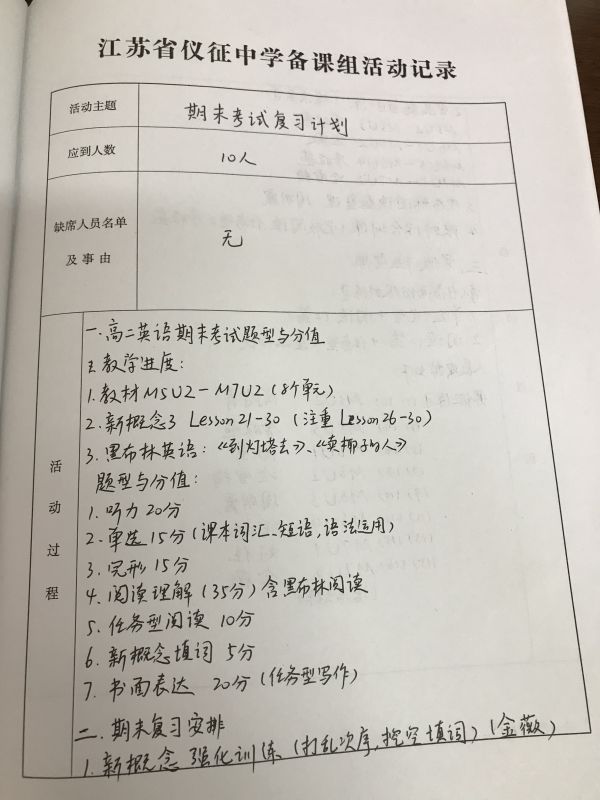 江苏省仪征中学备课组活动记录
活动主题
期末考试复习计划
应到人数
10人
缺席人员名单
及事由
无
活动过程
一.高二英语期末考试题型与分值
教学进度:
1.教材M5U2-M7U2(8个单元)
2.新概念3 Lesson 21-30 (注重Lesson 26-30)
3.黑布林英语:《到灯塔去》、《卖椰子的人》
题型与分值:
1.听力 20分
2.单选 15分(课本词汇、短语,语法运用)
3.完形 15分
4.阅读理解 (35分) 含黑布林阅读
5.任务型阅读 10分
6.新概念填词 5分
7.书面表达 20分(任务型写作)
二.期末复习安排
1.新概念 强化训练 (打乱次序,挖空填词) (金薇)